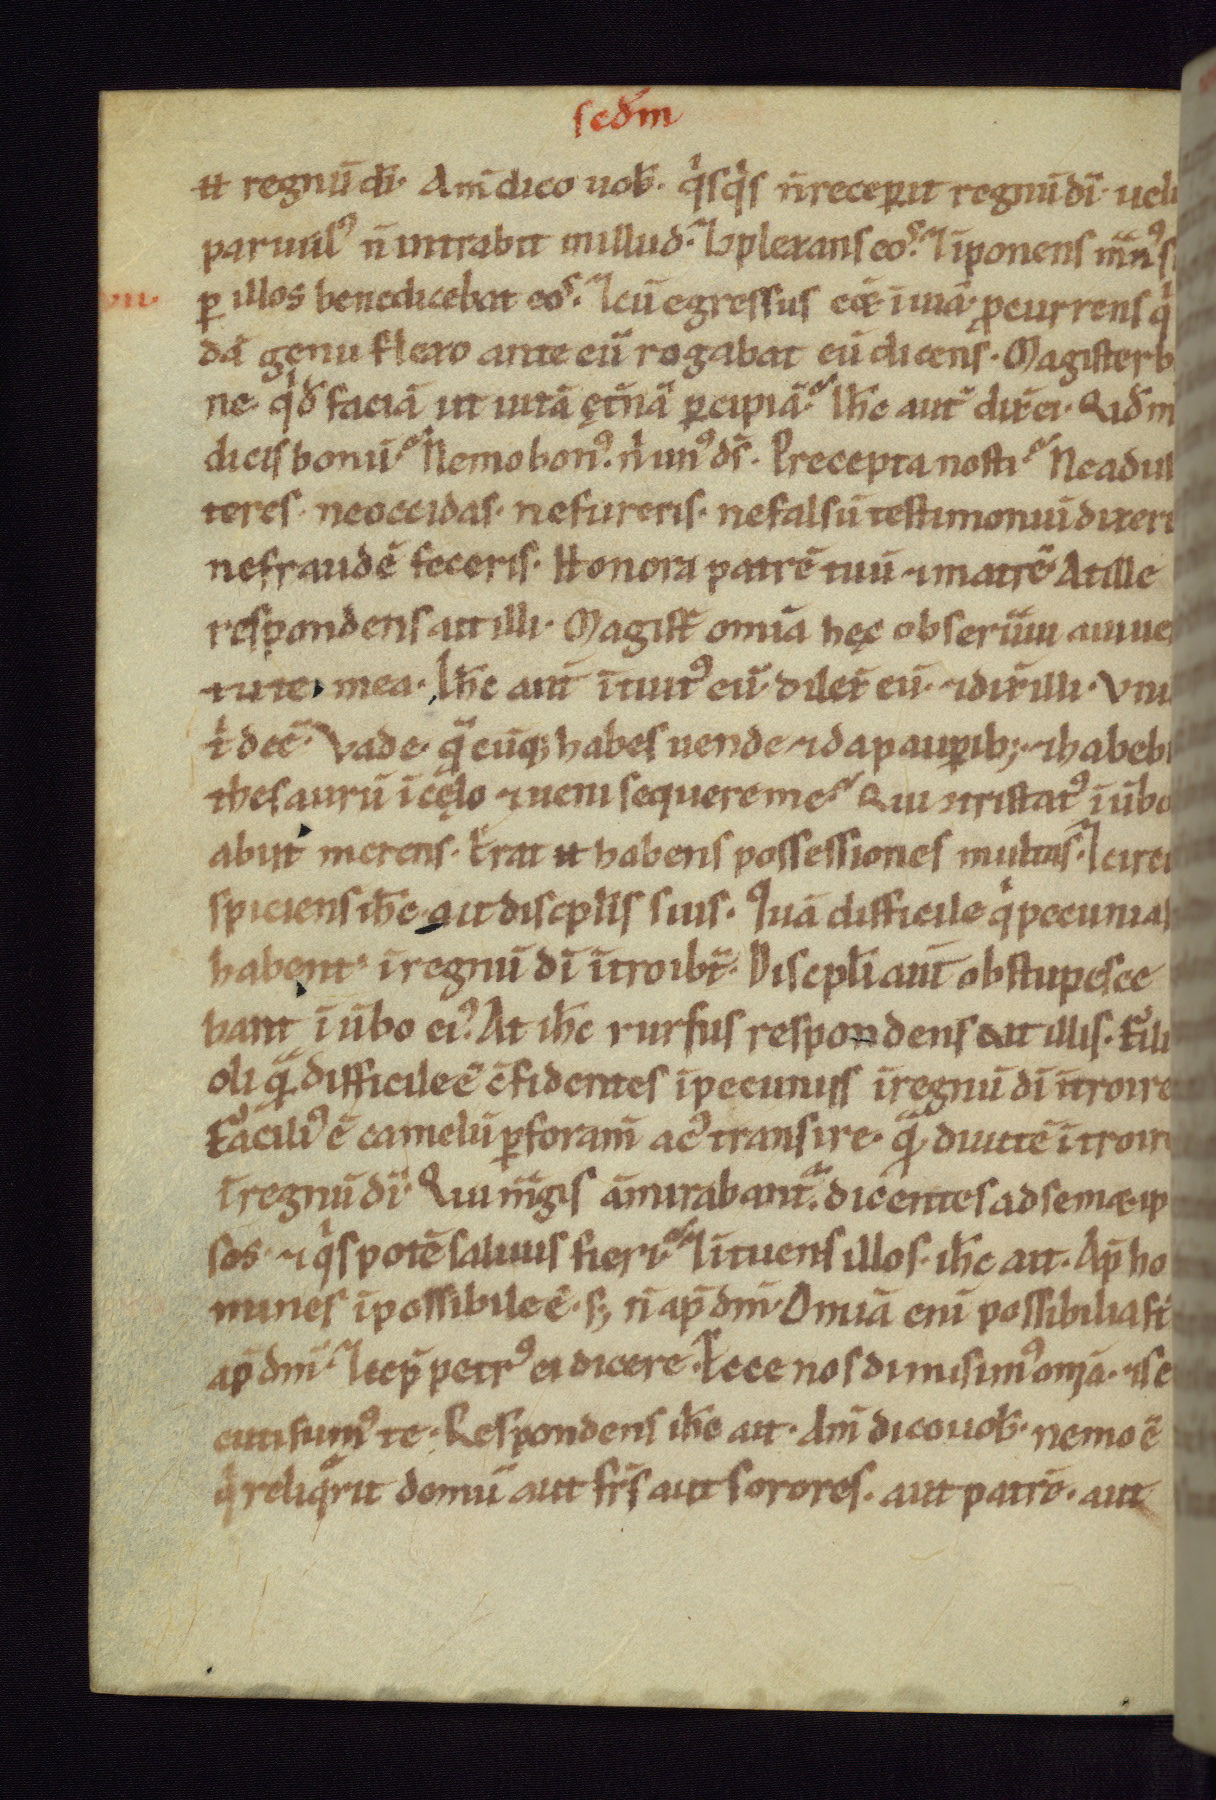 scďm
ħ regnū dī. Am̄ dico uob̄. qͥsqͥs n̄ receꝑit regnū dī. uelu
paruulꝰ n̄ intrabit in illud. ⁊ ↄplexans eoſ. ⁊ īponens man̄ꝰ
vii.
ꝑ illos benedicebat eoſ. ⁊ cū egressus eēt ī uiā. p̄currens qͥ
dā genu flexo ante eū rogabat eū dicens. Magister b
ne qͥd faciā ut uitā ęt̄nā ꝑcipiā. Ih̄c aut̄ dix̄ ei. Qid m
dicis bonū. Nemo bonꝰ. n̄ unꝰ dſ̄. Precepta nosti. Ne adul
teres. ne occidas. ne fureris. ne falsū testimoniū dixeri
ne fraudē feceris. Honora patrē tuū ⁊ matrē. At ille
respondens ait illi. Magist̄ om̄ia hęc obseruaui a iuue
tute mea. Ih̄c aut̄ ītuitꝰ eū dilex̄ eū. ⁊ dix̄ illi. Vnū
t̄ deē. Vade. q̄cūq; habes uende ⁊ da pauꝑib; ⁊ habebi
thesaurū ī cęlo ⁊ ueni sequere me. Qui ↄtristatꝰ ī ūbo
abiit merens. Erat ħ habens possessiones multas. ⁊ circū
spiciens ih̄c ait discplīs suis. Quā difficile qͥ pecunias
habent ī regnū dī ītroibt̄. Discplī aut̄ obstupesce
bant ī ūbo eiꝰ. At ih̄c rursus respondens ait illis. Fili
oli q̄ difficile ē ↄfidentes ī pecuniis ī regnū dī ītroire
Faciliꝰ ē camelū ꝑ foram̄ acꝰ transire. q̄ diuitē ītroire
ī regnū dī. Qui magis āmirabant̄. dicentes ad semæ ip
sos. ⁊ qͥs potē saluus fieri. ⁊ ītuens illos. ih̄c ait. Ap̄ ho
mines īpossibile ē. s; n̄ ap̄ dm̄. Omiā eni possibilia st̄
ap̄ dm̄. ⁊ cep̄ petrꝰ ei dicere. Ecce nos dimisimꝰ om̄ia. ⁊ se
cuti sumꝰ te. Respondens ih̄c ait. Am̄ dico uob̄. nemo ē
qͥ reliqͥrit domū aut fr̄s aut sorores. aut patrē. aut